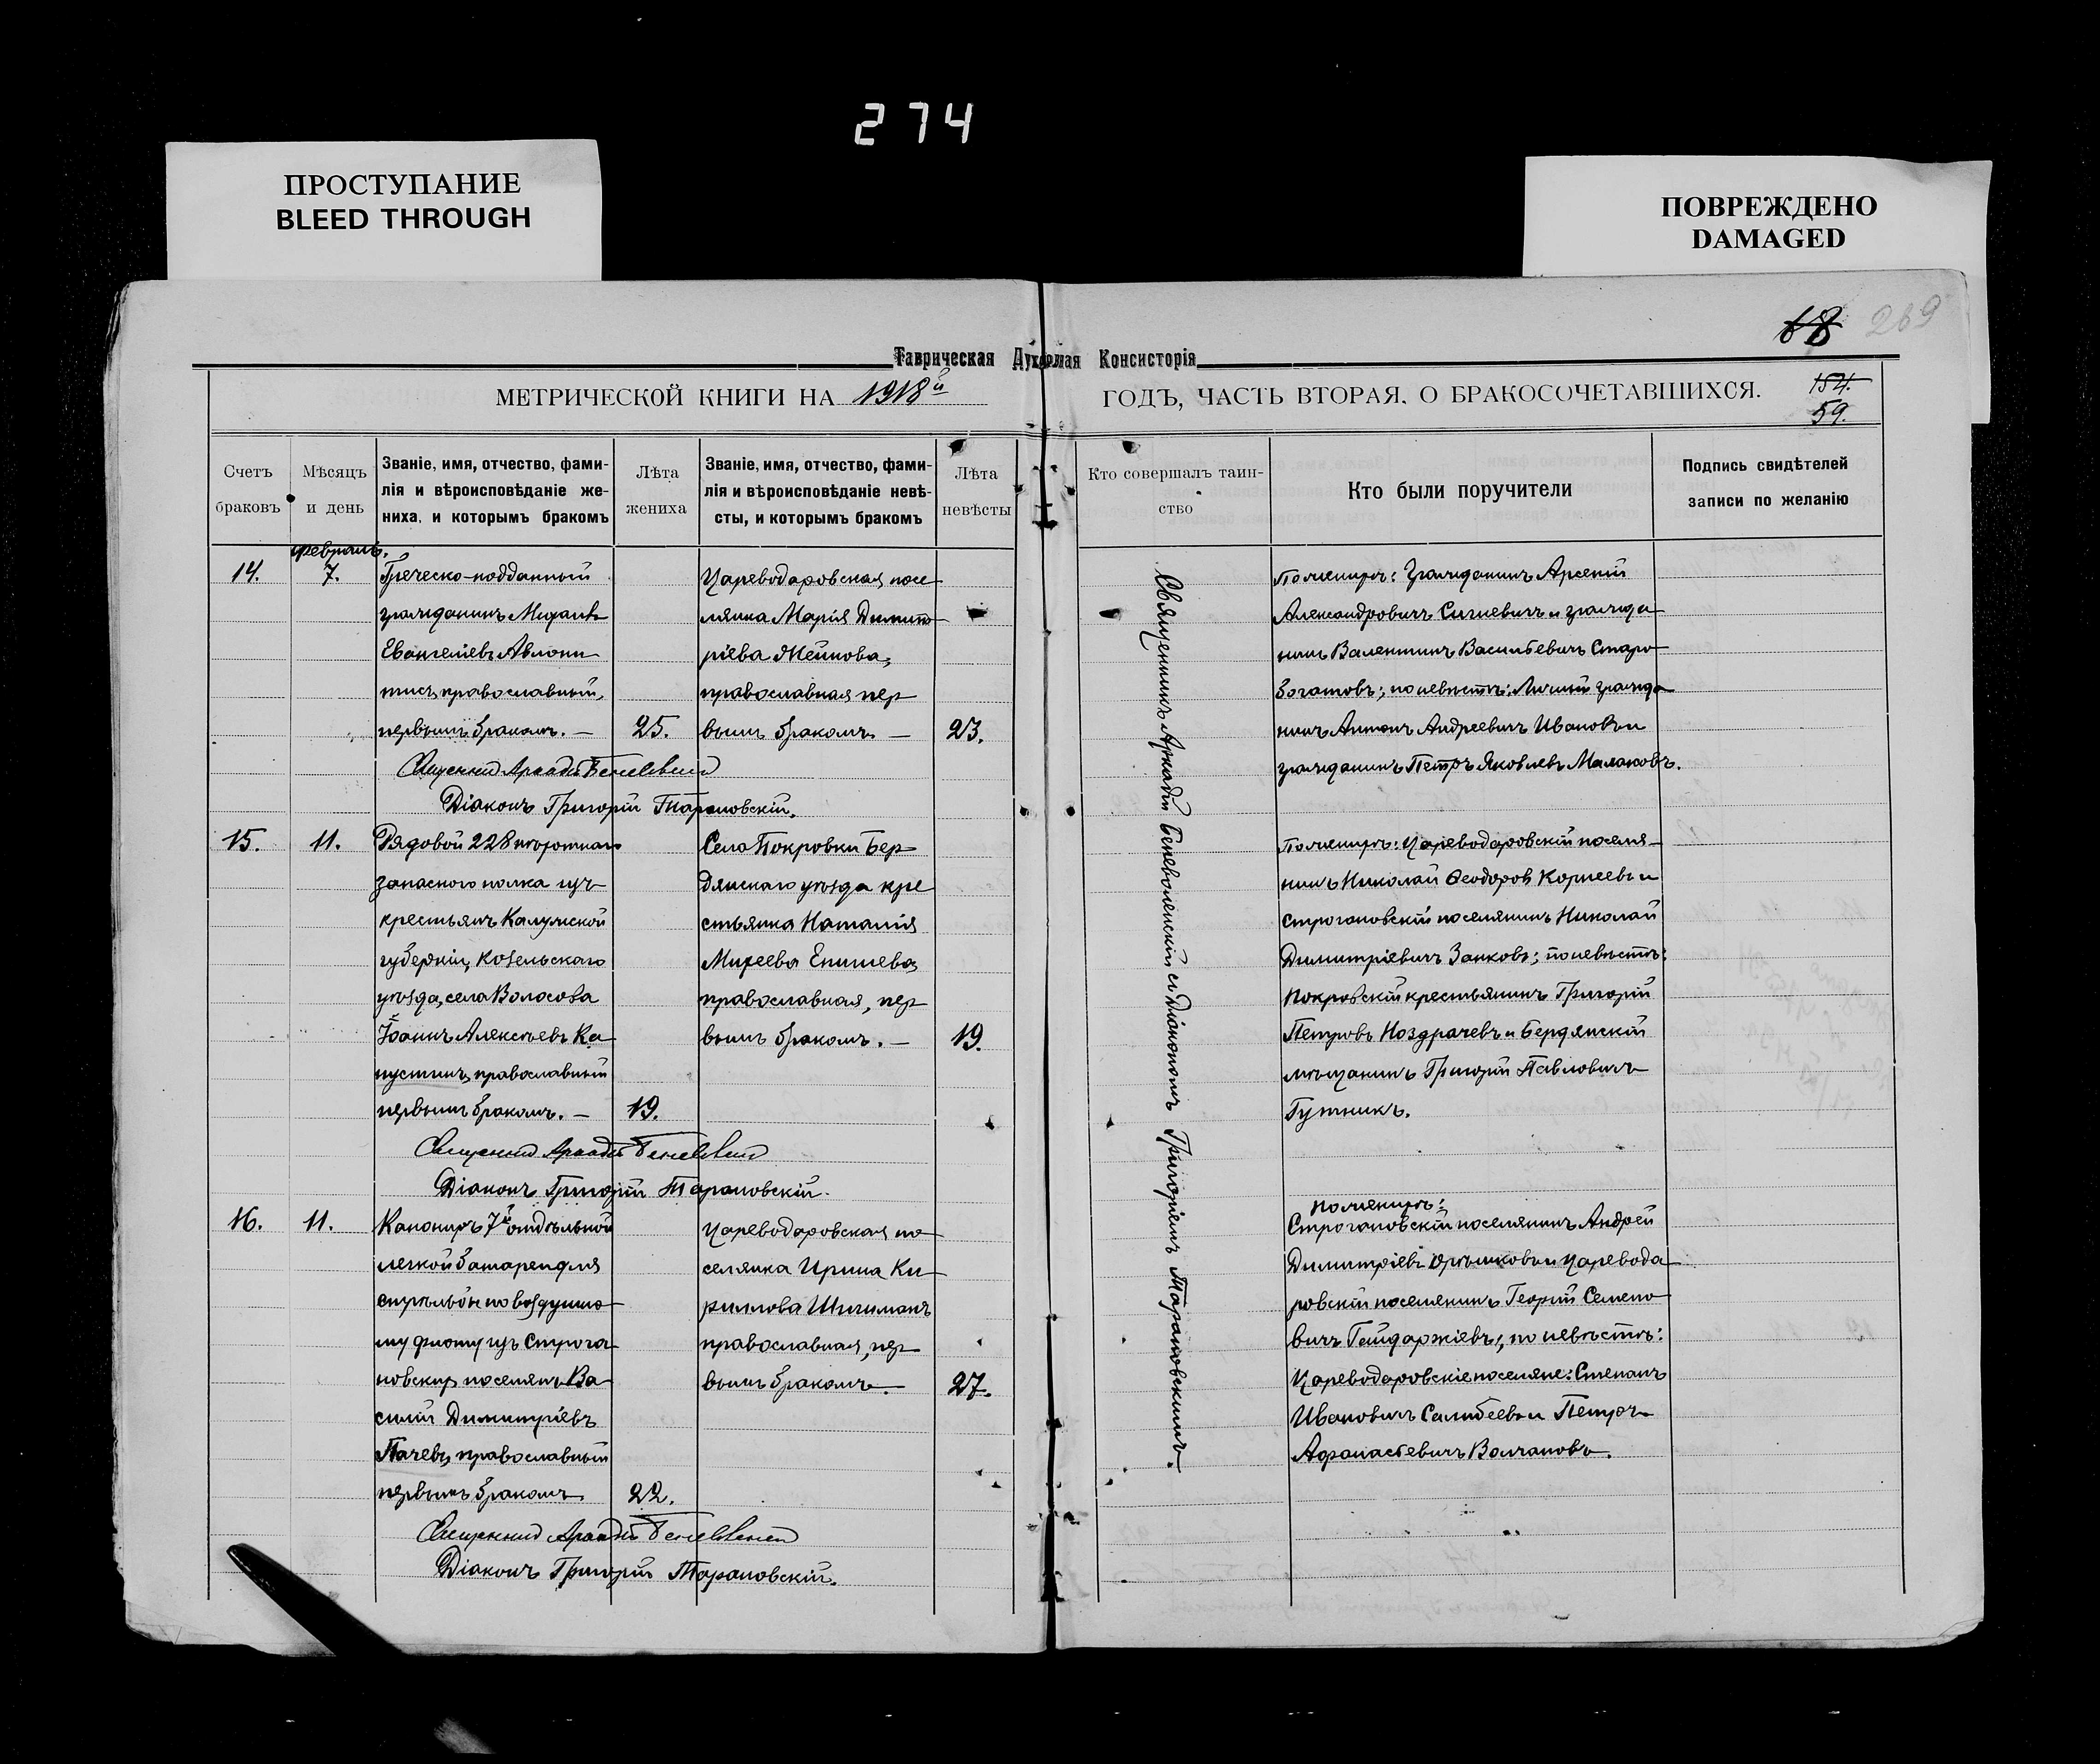 274
ПРОСТУПАНИЕ
BLEED THROUGH
ПОВРЕЖДЕНО
DAMAGED
68 269
Таврическая Духовная Консисторія
МЕТРИЧЕСКОЙ КНИГИ НА 1918й ГОДЪ, ЧАСТЬ ВТОРАЯ, О БРАКОСОЧЕТАВШИХСЯ.
154.
59.
Счетъ
браковъ
Мѣсяцъ
и день
Званіе, имя, отчество, фами-
лія и вѣроисповѣданіе же-
ниха, и которымъ бракомъ
Лѣта
жениха
Званіе, имя, отчество, фами-
лія и вѣроисповѣданіе невѣ-
сты, и которымъ бракомъ
Лѣта
невѣсты
Кто совершалъ таин-
ство
Кто были поручители
Подпись свидѣтелей
записи по желанію
февраль.
14.
7.
Греческо-подданный
гражданинъ Михаилъ
Евангеліевъ Авлони
тисъ, православный,
первымъ бракомъ. —
25.
Цареводаровская посе
лянка Марія Димит
ріева Жейнова,
православная пер
вымъ бракомъ. —
23.
Священникъ Аркадій Беневоленскій съ Діакономъ Григоріемъ Тарановскимъ.
По женихѣ: гражданинъ Арсеній
Александровичъ Сигневичъ и гражда
нинъ Валентинъ Васильевичъ Старо
богатовъ; по невѣстѣ: Личный гражда
нинъ Антонъ Андреевичъ Ивановъ и
гражданинъ Петръ Яковлевъ Малаховъ.
Священникъ Аркадій Беневоленскій
Діаконъ Григорій Тарановскій.
15.
11.
Рядовой 228 пѣхотнаго
запасного полка изъ
крестьянъ Калужской
губерніи, Козельскаго
уѣзда, села Волосова
Іоаннъ Алексѣевъ Ка
пустинъ, православный
первымъ бракомъ. —
19.
Села Покровки Бер
дянскаго уѣзда кре
стьянка Наталія
Михеева Епишева,
православная, пер
вымъ бракомъ. —
19.
По женихѣ: Цареводаровскій поселя
нинъ Николай Ѳеодоровъ Корнеевъ и
Строгановскій поселянинъ Николай
Димитріевичъ Занковъ; по невѣстѣ:
Покровскій крестьянинъ Григорій
Петровъ Ноздрачевъ и Бердянскій
мѣщанинъ Григорій Павловичъ
Гутникъ.
Священникъ Аркадій Беневоленскій
Діаконъ Григорій Тарановскій.
16.
11.
Канониръ 7й отдѣльной
легкой батареи для
стрѣльбы по воздушно
му флоту изъ Строга
новскихъ поселянъ Ва
силій Димитріевъ
Пачевъ, православный
первымъ бракомъ
22.
Цареводаровская по
селянка Ирина Ки
риллова Шишманъ
православная, пер
вымъ бракомъ.
27.
По женихѣ:
Строгановскій поселянинъ Андрей
Димитріевъ Орѣшковъ и Царевода
ровскій поселянинъ Георгій Семено
вичъ Гайдаржіевъ; по невѣстѣ:
Цареводаровскіе поселяне: Степанъ
Ивановичъ Салибеевъ и Петръ
Афанасьевичъ Волчановъ.
Священникъ Аркадій Беневоленскій
Діаконъ Григорій Тарановскій.